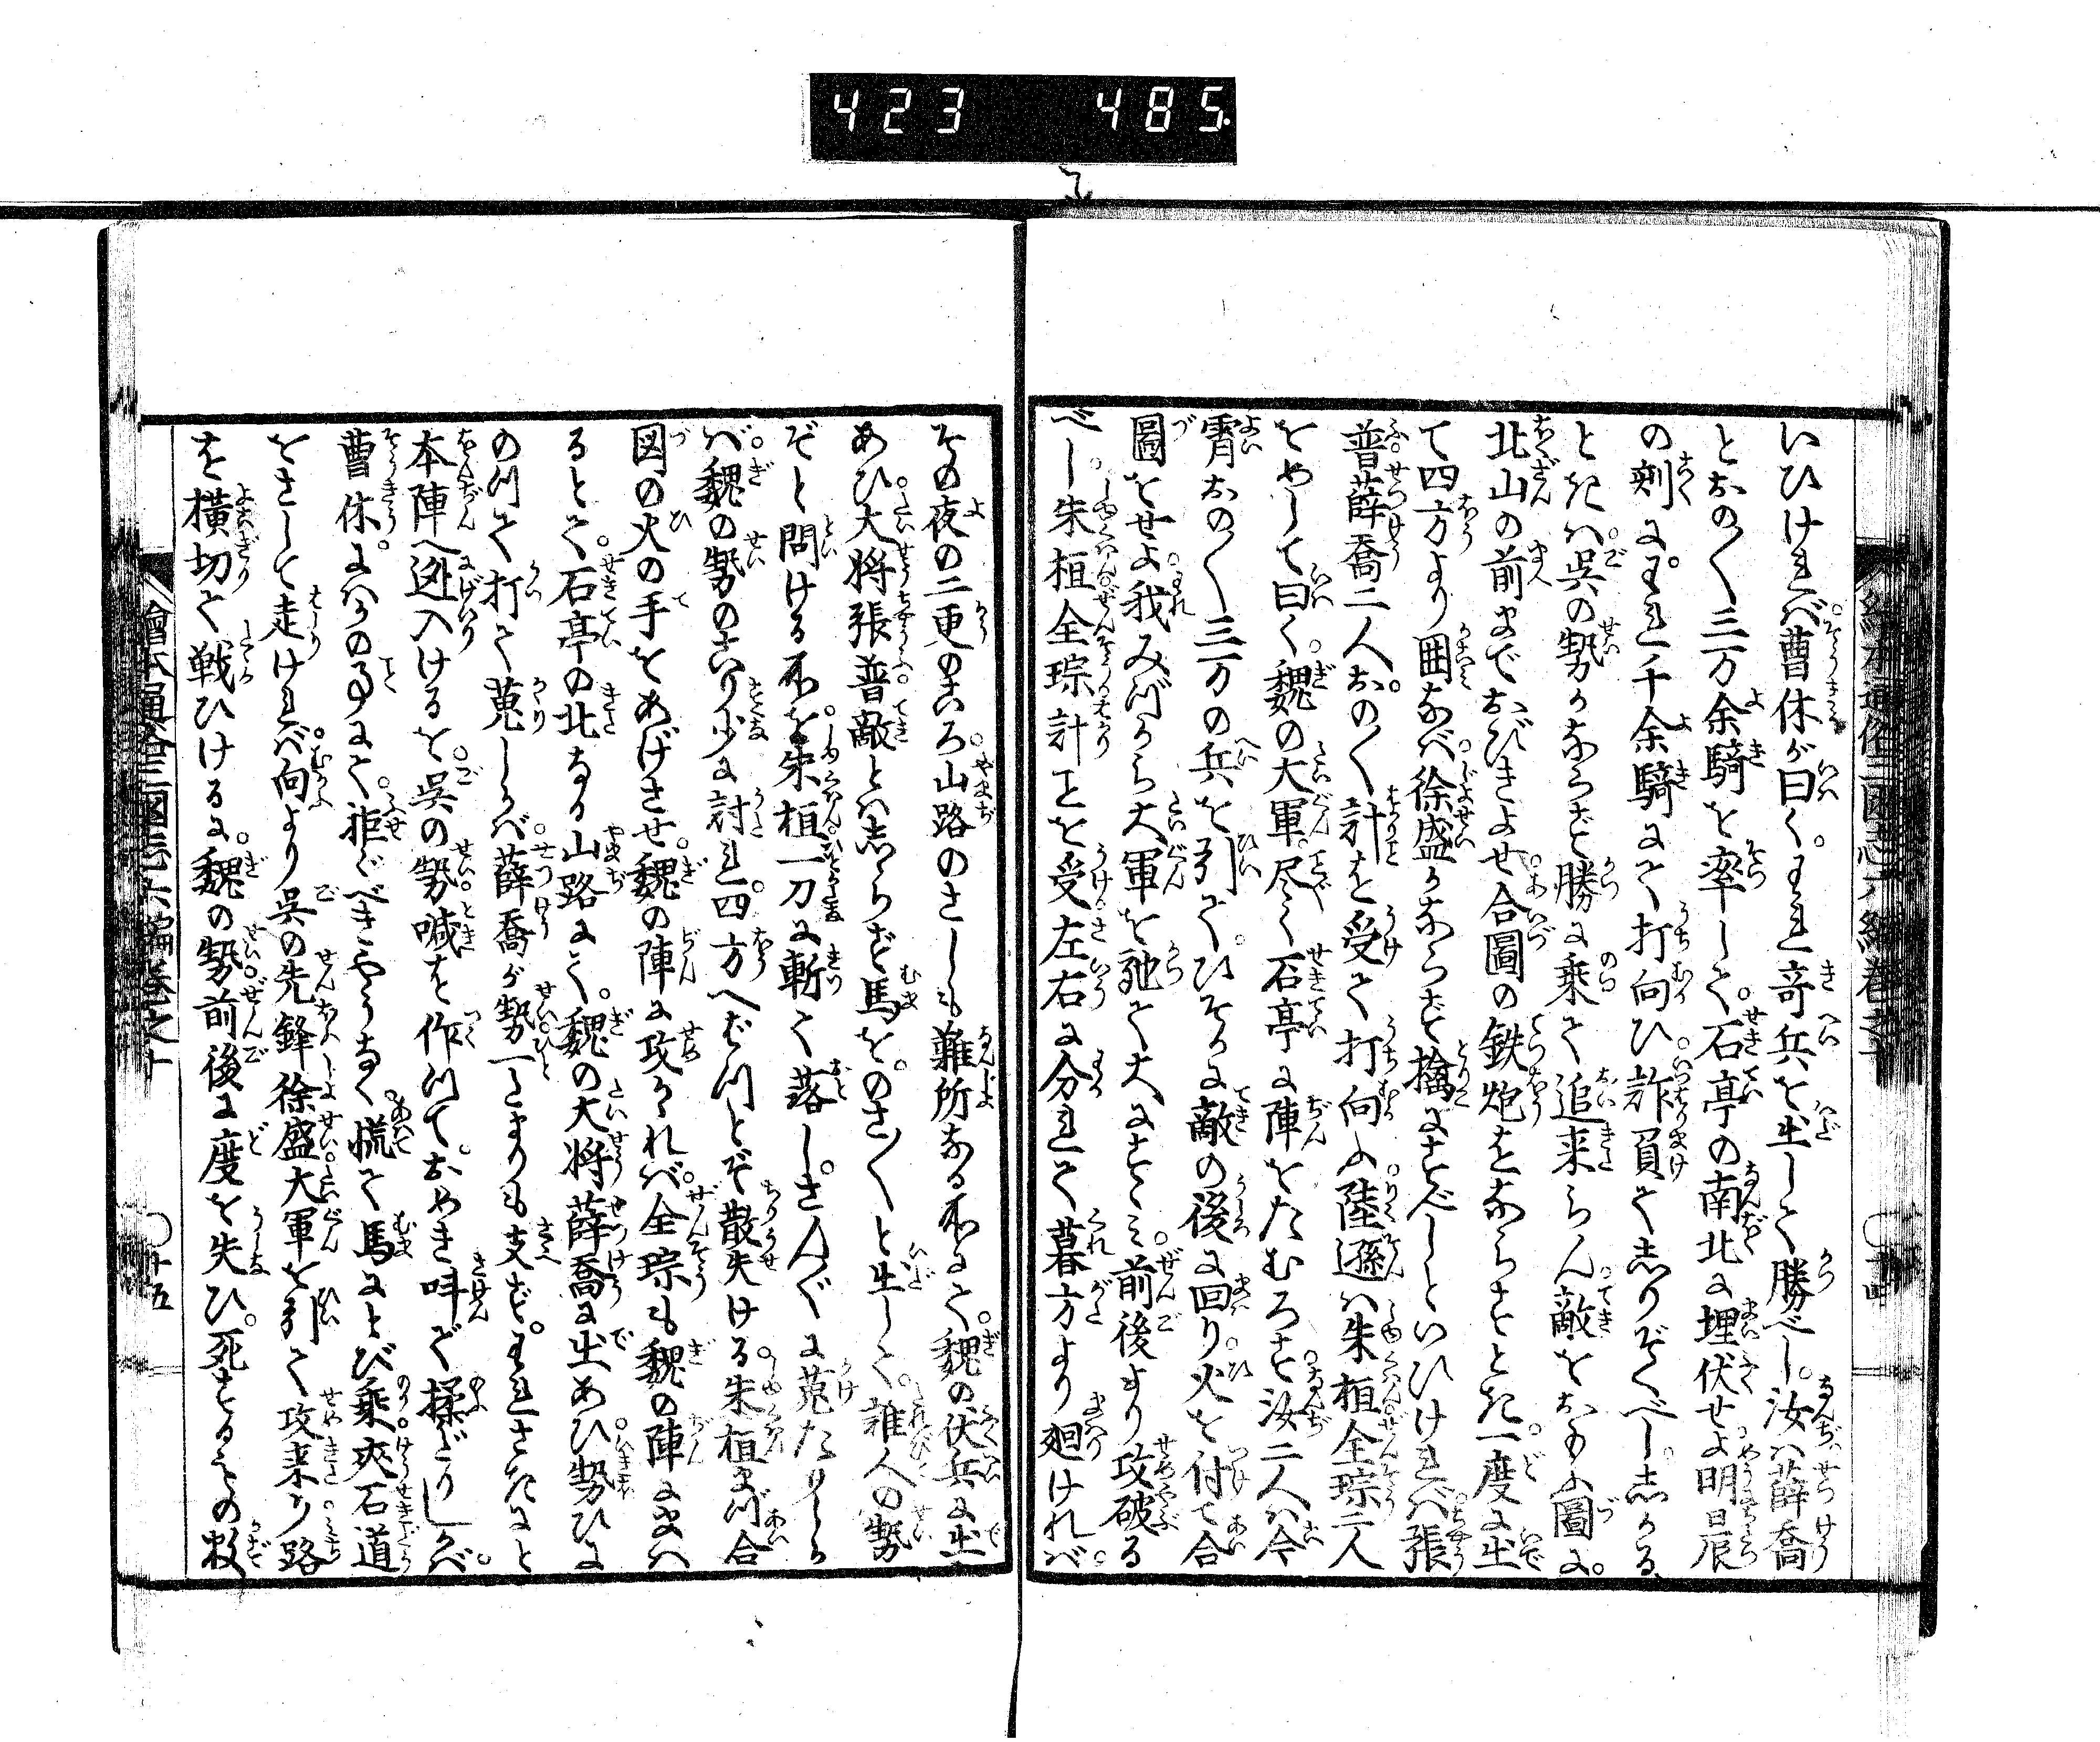 423 485
いひければ曹休が曰くわれ奇兵を出して勝べし汝は薛喬
とおの〱三万余騎を率して石亭の南北に埋伏せよ明日辰
の刻にわれ千余騎にて打向ひ詐負てしりぞくべししかる
ときは呉の勢かならず勝に乗て追来らん敵をおもふ圖に
北山の前までおびきよせ合圖の鉄炮をならすとき一度に出
て四方より囲なば徐盛かならず擒にすべしといひければ張
普薛喬二人おの〱計を受て打向ふ陸遜は朱桓全琮二人
をめして曰く魏の大軍尽く石亭に陣をたむろす汝二人は今
宵おの〱三万の兵を引てひそかに敵の後に回り火を付て合
圖をせよ我みづから大軍を驰て大にすゝみ前後より攻破る
べし朱桓全琮計ことを受左右に分れて暮方より廻ければ
その夜の二更のころ山路のさしも難所なる所にて魏の伏兵に出
あひ大将張普敵とはしらず馬をのさ〱と出して誰人の勢
ぞと問ける所を朱桓一刀に斬て落しさん〲に蒐たりしか
ば魏の勢のこり少に討れ四方へばつとぞ散失ける朱桓まづ合
図の火の手をあげさせ魏の陣に攻かれば全琮も魏の陣にまは
るとて石亭の北なる山路にて魏の大将薛喬に出あひ勢ひに
のつて打て蒐しかば薛喬が勢一とまりも支ずわれさきにと
本陣へ迯入けるを呉の勢喊を作つておめき叫で揉だりしかば
曹休にはかの事にて拒ぐべきやうなく慌て馬にとび乗夾石道
をさして走ければ向より呉の先鋒徐盛大軍を引て攻来り路
を横切て戦ひけるに魏の勢前後に度を失ひ死するもの数
繪本通俗三國志六編巻之十
十五